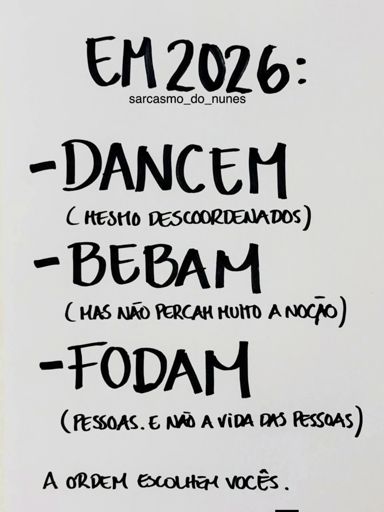 EM 2026:
sarcasmo_do_nunes
- DANCEM
(MESMO DESCOORDENADOS)
- BEBAM
(MAS NÃO PERCAM MUITO A NOÇÃO)
- FODAM
(PESSOAS. E NÃO A VIDA DAS PESSOAS)
A ORDEM ESCOLHEM VOCÊS.